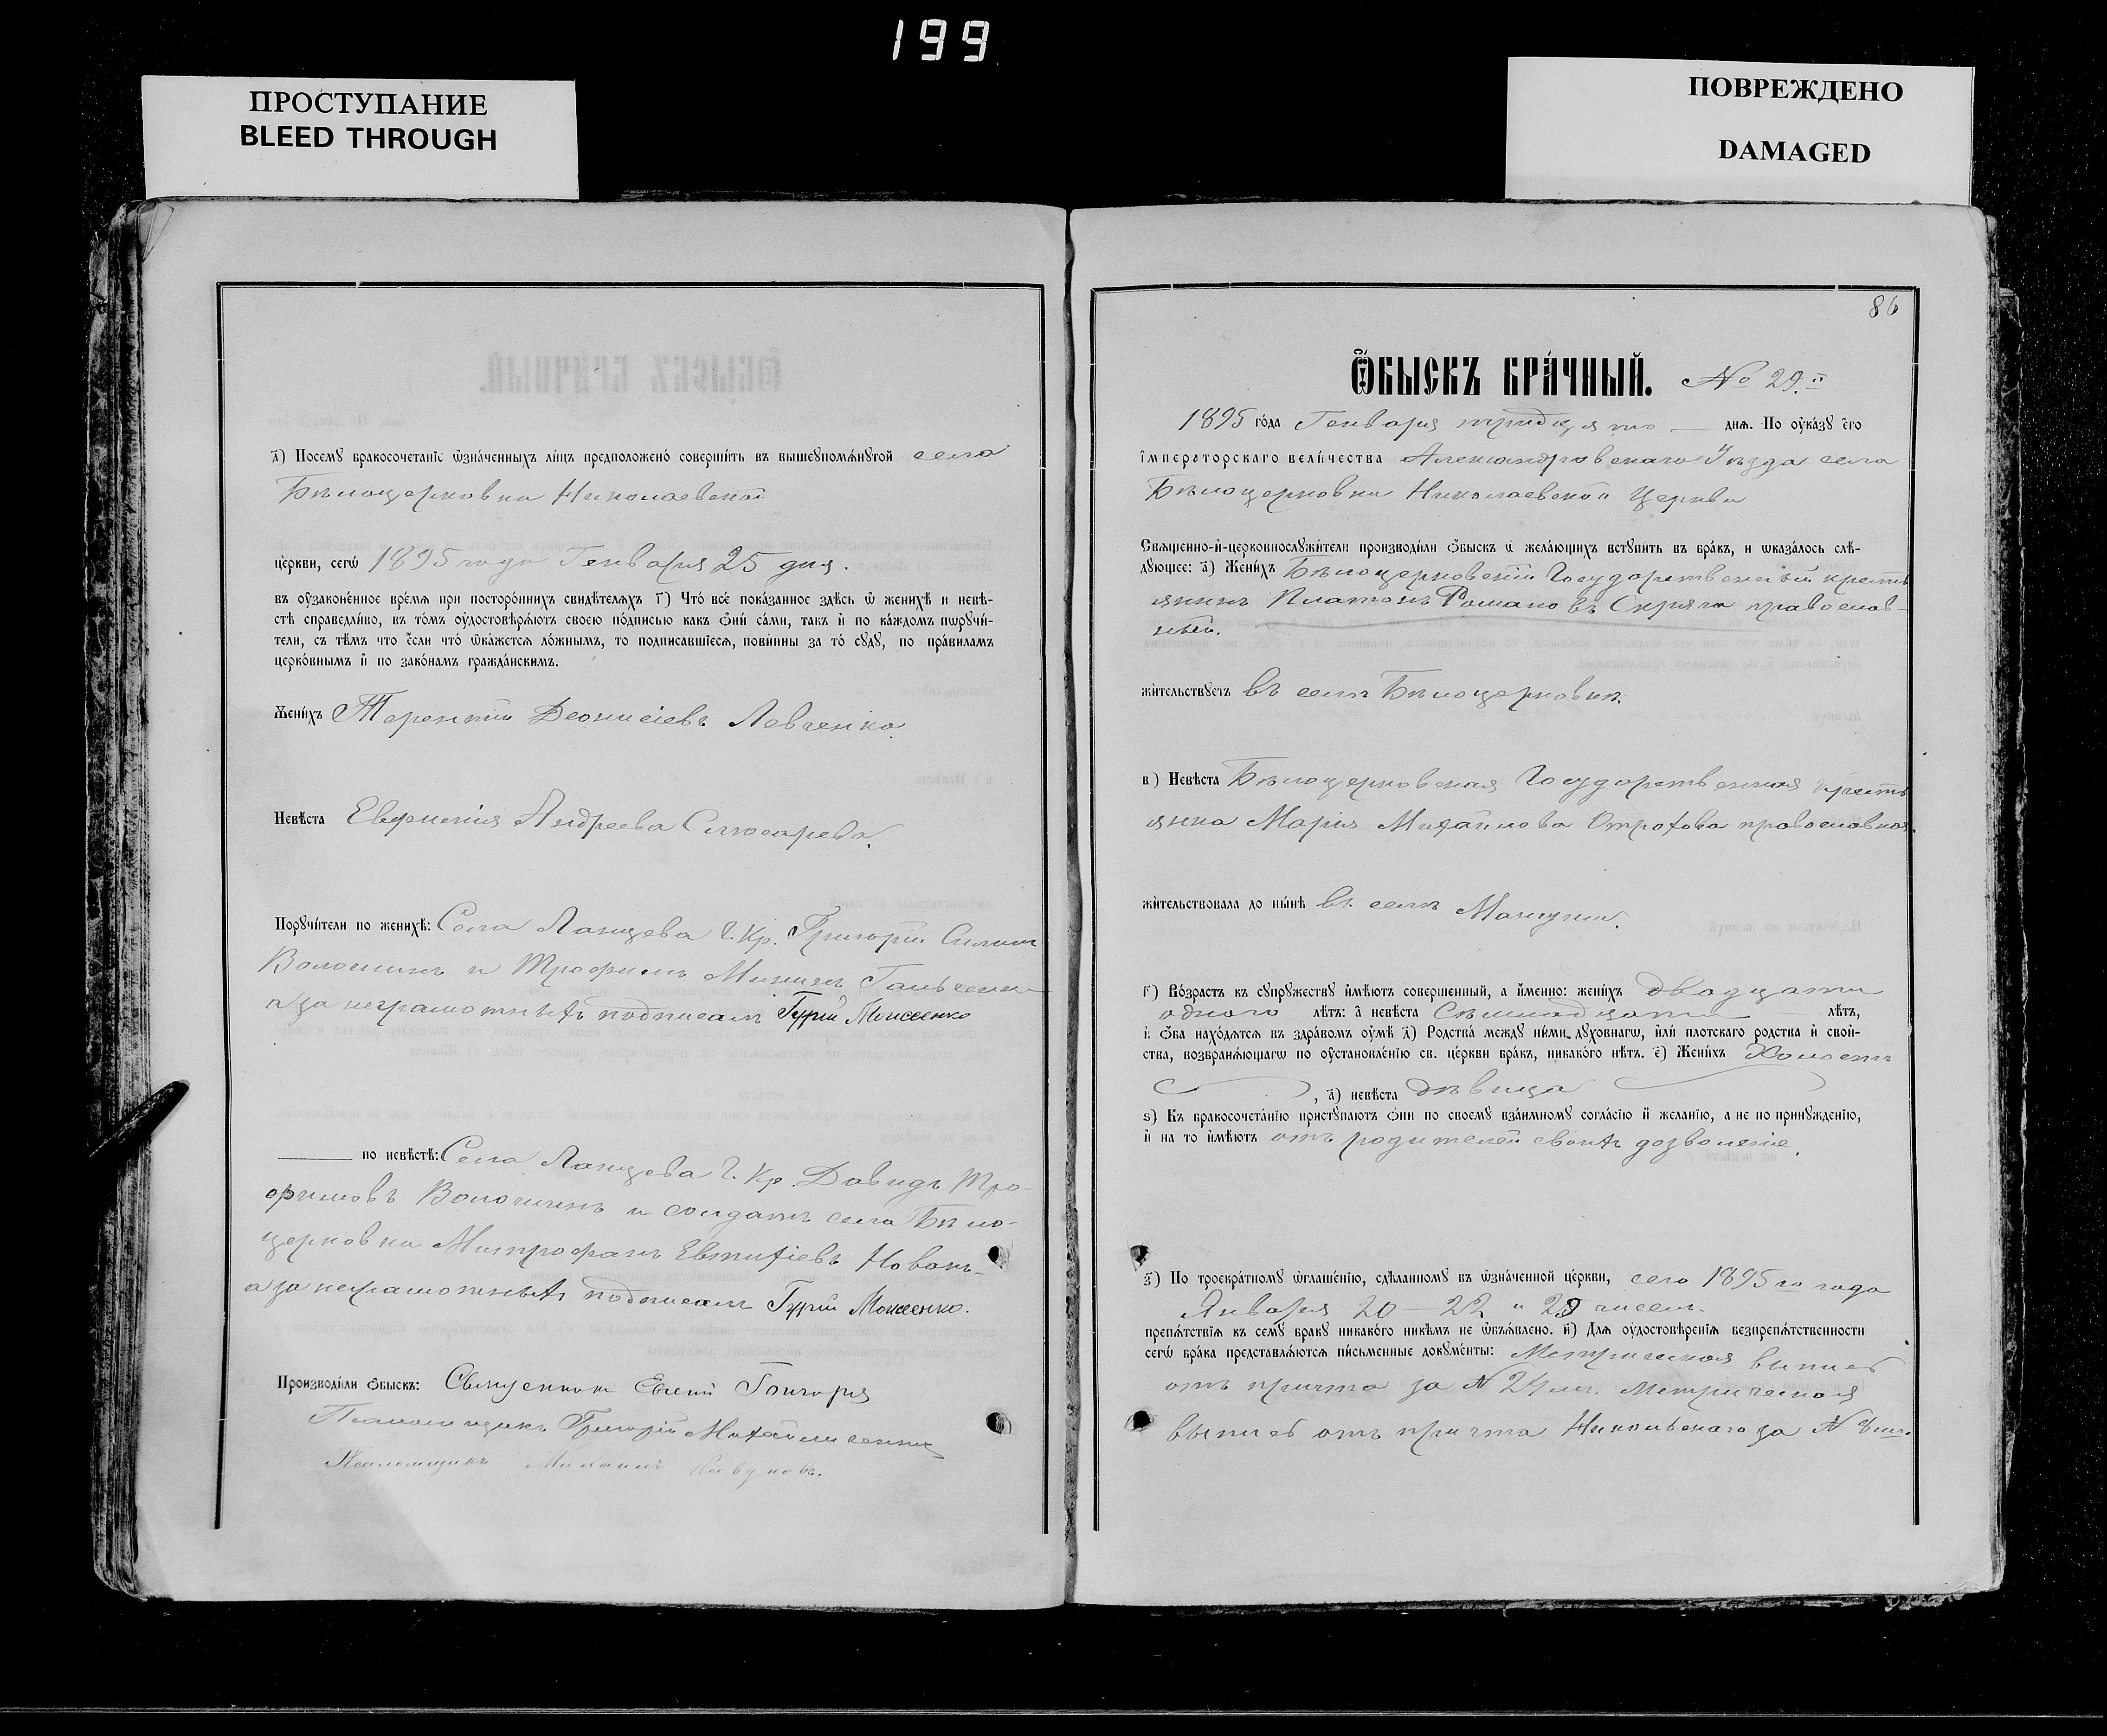 199
ПРОСТУПАНИЕ
BLEED THROUGH
ПОВРЕЖДЕНО
DAMAGED
д҃) Посемꙋ бракосочетаніе ѡзна́ченныхъ ли́цъ предположено́ соверши́ть въ вышеꙋпомѧ́нꙋтой села
Бѣлоцерковки Николаевской
це́ркви, сегѡ̀ 1895 года Генваря 25 дня.
въ оу҆зако́ненное вре́мѧ при посторо́ннихъ свидѣ́телѧхъ г҃) Что́ все́ пока́занное здѣ́сь ѡ҆ женихѣ̀ и невѣ́-
стѣ справедли́во, въ то́мъ оу҆достовѣрѧ́ютъ своею по́дписью какъ ѻ҆ни́ са́ми, такъ и҆ по ка́ждомъ пѡрꙋчи́-
тели, съ тѣ́мъ что є҆́сли что́ ѡ҆ка́жетсѧ ло́жнымъ, то подписавшїесѧ, пови́нны за то́ сꙋдꙋ̀, по пра́виламъ
церко́внымъ и҆ по зако́намъ гражда́нскимъ.
Жени́хъ Терентій Деонисіевъ Левченко.
Невѣ́ста Евфимія Андреева Слюсарева.
Порꙋчи́тели по женихѣ̀: Села Ланцева Г. Кр. Григорій Силинъ
Волошинъ и Трофимъ Мининъ
а за неграмотныхъ подписалъ Гурій Моисеенко
по невѣ́стѣ: Села Ланцева Г. Кр. Давидъ Тро-
фимовъ Волошинъ и солдатъ села Бѣло-
церковки Митрофанъ Евтихіевъ
а за неграмотныхъ подписалъ Гурій Моисеенко.
Производи́ли ѻ҆́быскъ: Священникъ Евгеній Гончаровъ
Псаломщикъ Григорій Михайличенко
Псаломщикъ Михаилъ
86
Ѻ҆́БЫСКЪ БРА́ЧНЫЙ. № 29.й
1895 го́да Генваря тридцятого днѧ. По оу҆ка́зꙋ є҆гѡ̀
і҆мпера́торскаго вели́чества Александровскаго Уѣзда села
Бѣлоцерковки Николаевской Церкви
Свѧщенно-и҆-церковнослꙋжи́тели производи́ли ѻ҆́быскъ ѡ҆ жела́ющихъ встꙋпи́ть въ бра́къ, и ѡказа́лось слѣ́-
дꙋющее: а҃) Жени́хъ Бѣлоцерковскій Государственный кресть
янинъ Платонъ Романовъ Скряга православ-
ный.
жи́тельствꙋетъ въ селѣ Бѣлоцерковкѣ.
в҃) Невѣ́ста Бѣлоцерковская Государственная кресть
янка Марія Михайлова Отрохова православная.
жи́тельствовала до ны́нѣ въ селѣ
г҃) Во́зрастъ къ сꙋпрꙋ́жествꙋ и҆мѣ́ютъ совершенный, а и҆́менно: жени́хъ двадцати
одного лѣтъ: а҆ невѣ́ста Сѣмнадцати лѣтъ,
и҆ ѻ҆́ба нахо́дѧтсѧ въ здра́вомъ оу҆мѣ̀ д҃) Родства̀ междꙋ ни́ми дꙋхо́внагѡ, и҆лѝ пло́тскаго родства̀ и҆ свой-
ства, возбранѧ́ющагѡ по оу҆становле́нію св. це́ркви бра́къ, никако́го нѣ́тъ. є҃) Жени́хъ Холостъ
, а҆) невѣ́ста дѣвица
ѕ҃) Къ бракосочета́нію пристꙋпа́ютъ ѻ҆ни̂ по своемꙋ̀ вза́имномꙋ согла́сію и҆ жела́нію, а не по принꙋжде́нію,
и҆ на то и҆мѣ́ютъ отъ родителей своихъ дозволеніе.
з҃) По троекра́тномꙋ ѡ҆глаше́нію, сдѣ́ланномꙋ въ ѡ҆зна́ченной це́ркви, сего 1895 го года
Января 20 — 22 и 29 чиселъ.
препѧ́тствїѧ къ семꙋ̀ бракꙋ никако́го никѣ́мъ не ѡ҆бъѧ́влено. и҃) Длѧ оу҆достовѣре́нїѧ безпрепѧ́тственности
сегѡ̀ бра́ка представлѧ́ютсѧ пи́сьменные докꙋме́нты: Метрическая выпись
отъ причта за № 24 мъ. Метрическая
выпись отъ причта Никольскаго за №